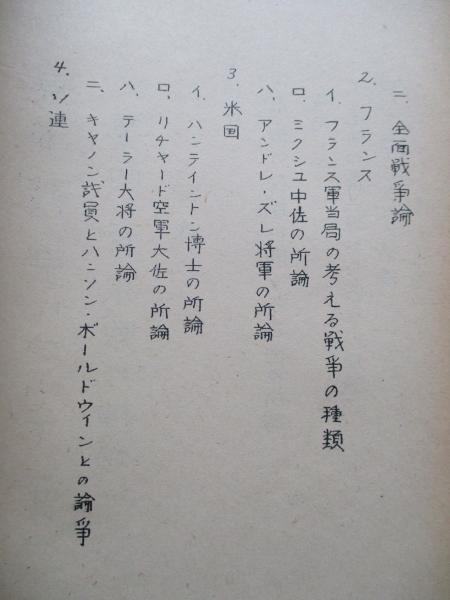 ニ、全面戦争論
2、フランス
イ、フランス軍当局の考える戦争の種類
ロ、ミクシユ中佐の所論
ハ、アンドレ・ズレ将軍の所論
3、米国
イ、ハンテイントン博士の所論
ロ、リチヤード空軍大佐の所論
ハ、テーラー大将の所論
ニ、キヤノン議員とハンソン・ボールドウインとの論争
4、ソ連